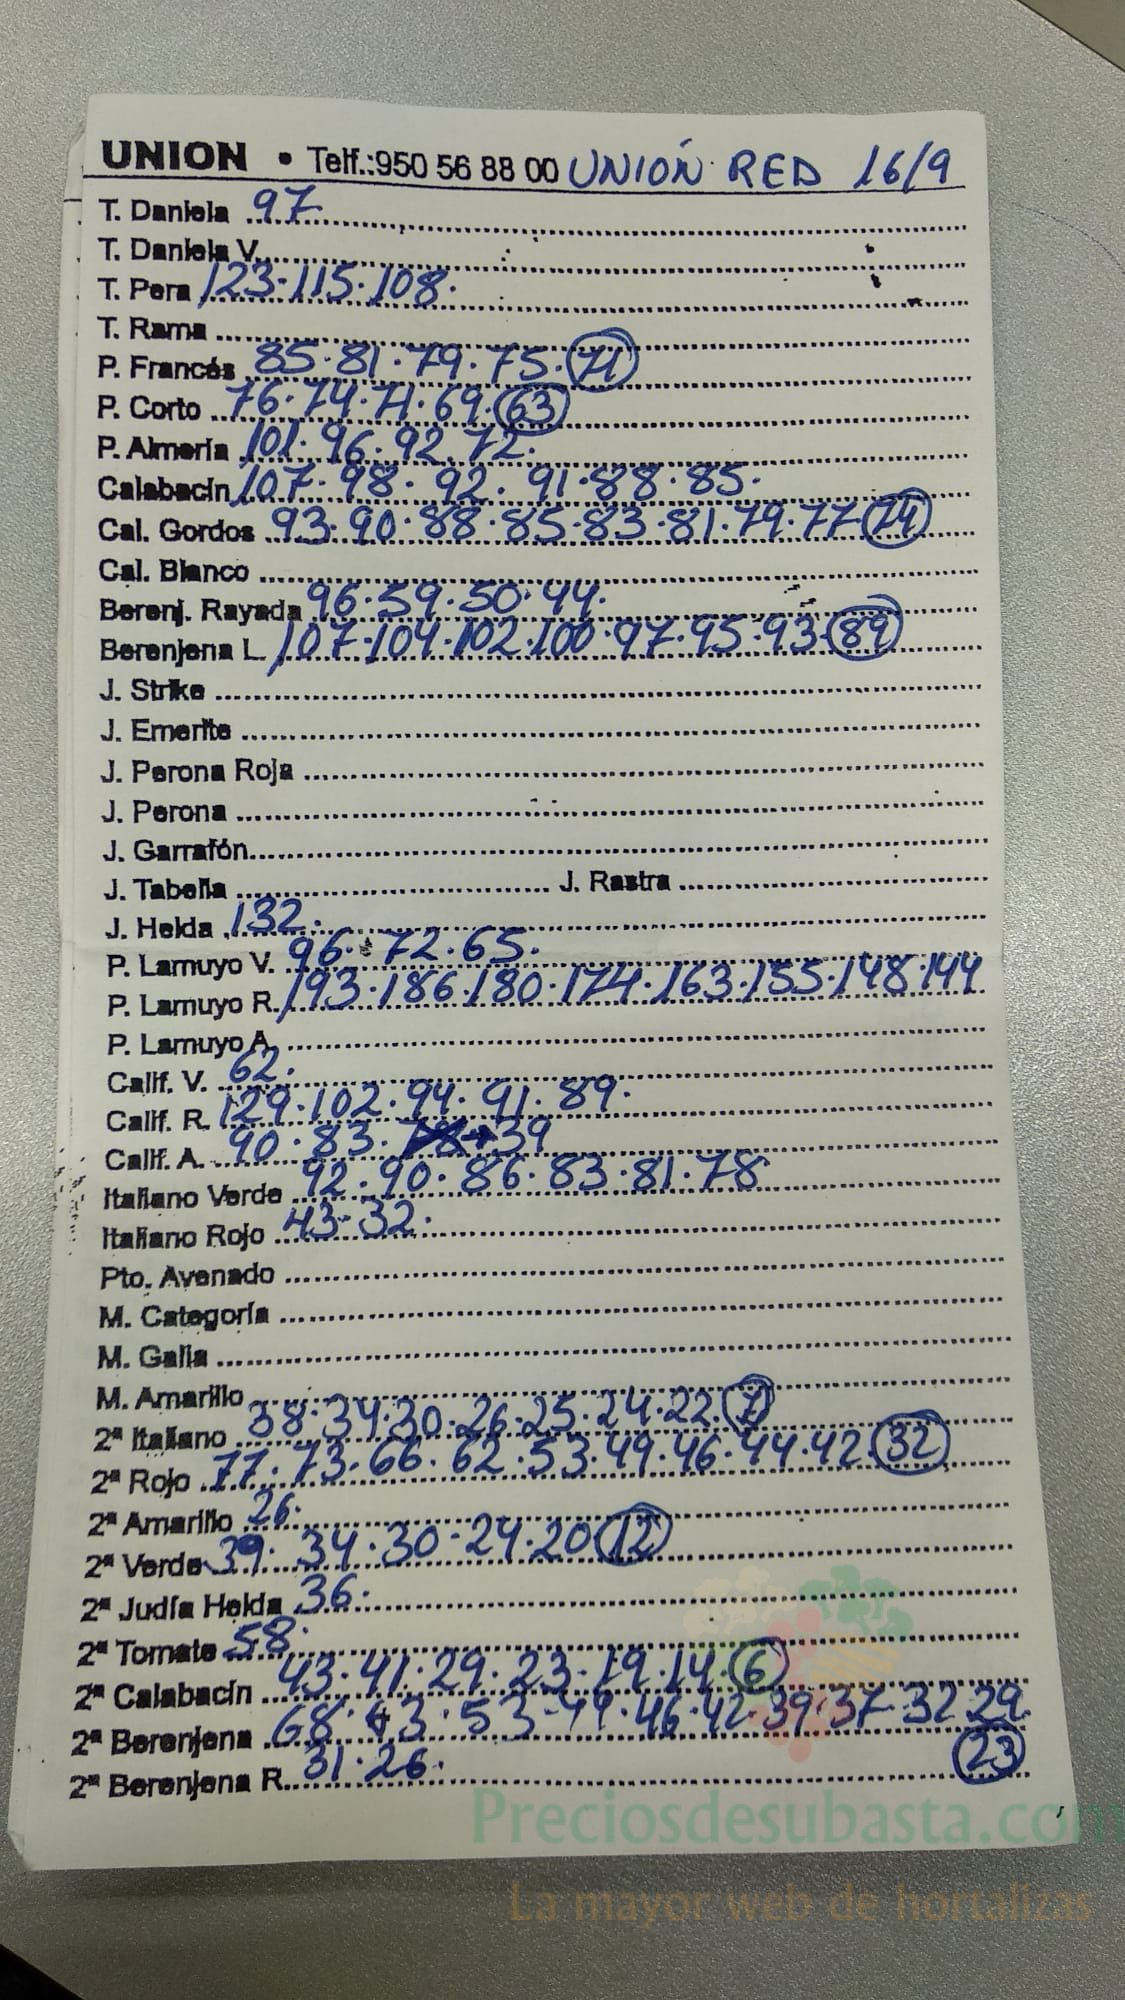 UNION • Telf.:950 56 88 00 UNIÓN RED 16/9
T. Daniela 97
T. Daniela V.
T. Pera 123·115·108·
T. Rama
P. Francés 85·81·79·75·71
P. Corto 76·74·71·69·63
P. Almería 101·96·92·72·
Calabacín 107·98·92·91·88·85·
Cal. Gordos 93·90·88·85·83·81·79·77 74
Cal. Blanco
Berenj. Rayada 96·59·50·44·
Berenjena L. 107·104·102·100·97·95·93·89
J. Strike
J. Emerite
J. Perona Roja
J. Perona
J. Garrafón
J. Tabella J. Rastra
J. Helda 132·
P. Lamuyo V. 96·72·65·
P. Lamuyo R. 193·186·180·174·163·155·148·144
P. Lamuyo A.
Calif. V. 62·
Calif. R. 129·102·94·91·89·
Calif. A. 90·83·78→39
Italiano Verde 92·90·86·83·81·78
Italiano Rojo 43·32·
Pto. Avenado
M. Categoría
M. Galia
M. Amarillo
2ª Italiano 38·34·30·26·25·24·22·
2ª Rojo 77·73·66·62·53·49·46·44·42 32
2ª Amarillo 26·
2ª Verde 39·34·30·24·20 12
2ª Judía Helda 36·
2ª Tomate 58·
2ª Calabacín 43·41·29·23·19·14·6
2ª Berenjena 68· 53· 46·42·39·37·32·29
2ª Berenjena R. 31·26· 23
Preciosdesubasta.com
La mayor web de hortalizas